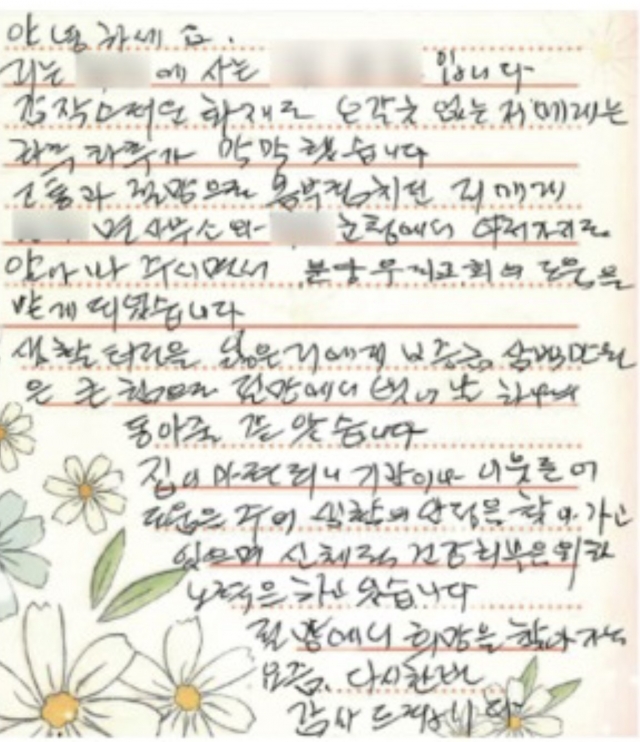 안녕하세요.
저는 에 사는 입니다
갑작스러운 화재로 오갈곳 없는 저에게는
하루 하루가 막막 했습니다
고통과 절망으로 몸부림치던 저에게
면사무소와 군청에서 여러가지로
알아봐 주시면서 분당우리교회의 도움을
받게 되었습니다
생활터전을 잃은 저에게 보증금 삼백만원
은 큰 힘으로 절망에서 벗어난 하나의
동아줄 같았습니다
집이 마련되니 기관이나 이웃들의
도움을 주어 생활의 안정을 찾아가고
있으며 신체적 건강회복을 위한
노력을 하고 있습니다
절망에서 희망을 찾아가는
요즘. 다시한번
감사 드립니다